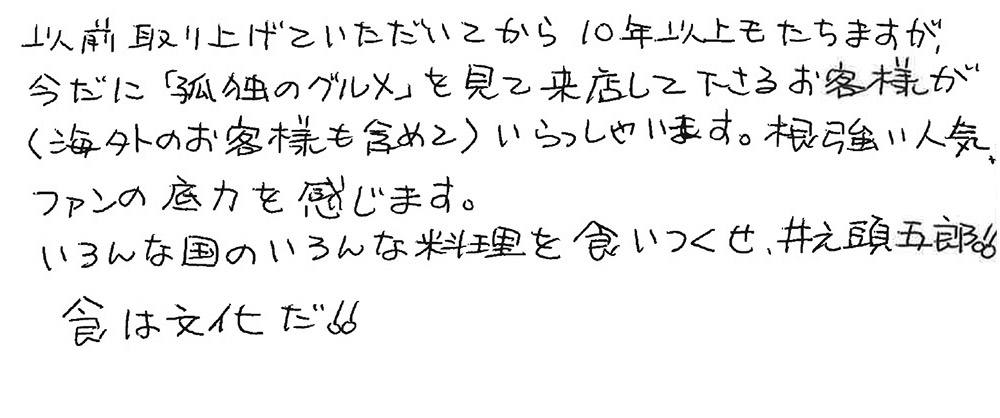 以前取り上げていただいてから10年以上もたちますが、
今だに「孤独のグルメ」を見て来店して下さるお客様が
（海外のお客様も含めて）いらっしゃいます。根強い人気、
ファンの底力を感じます。
いろんな国のいろんな料理を食いつくせ、井之頭五郎!!
食は文化だ!!